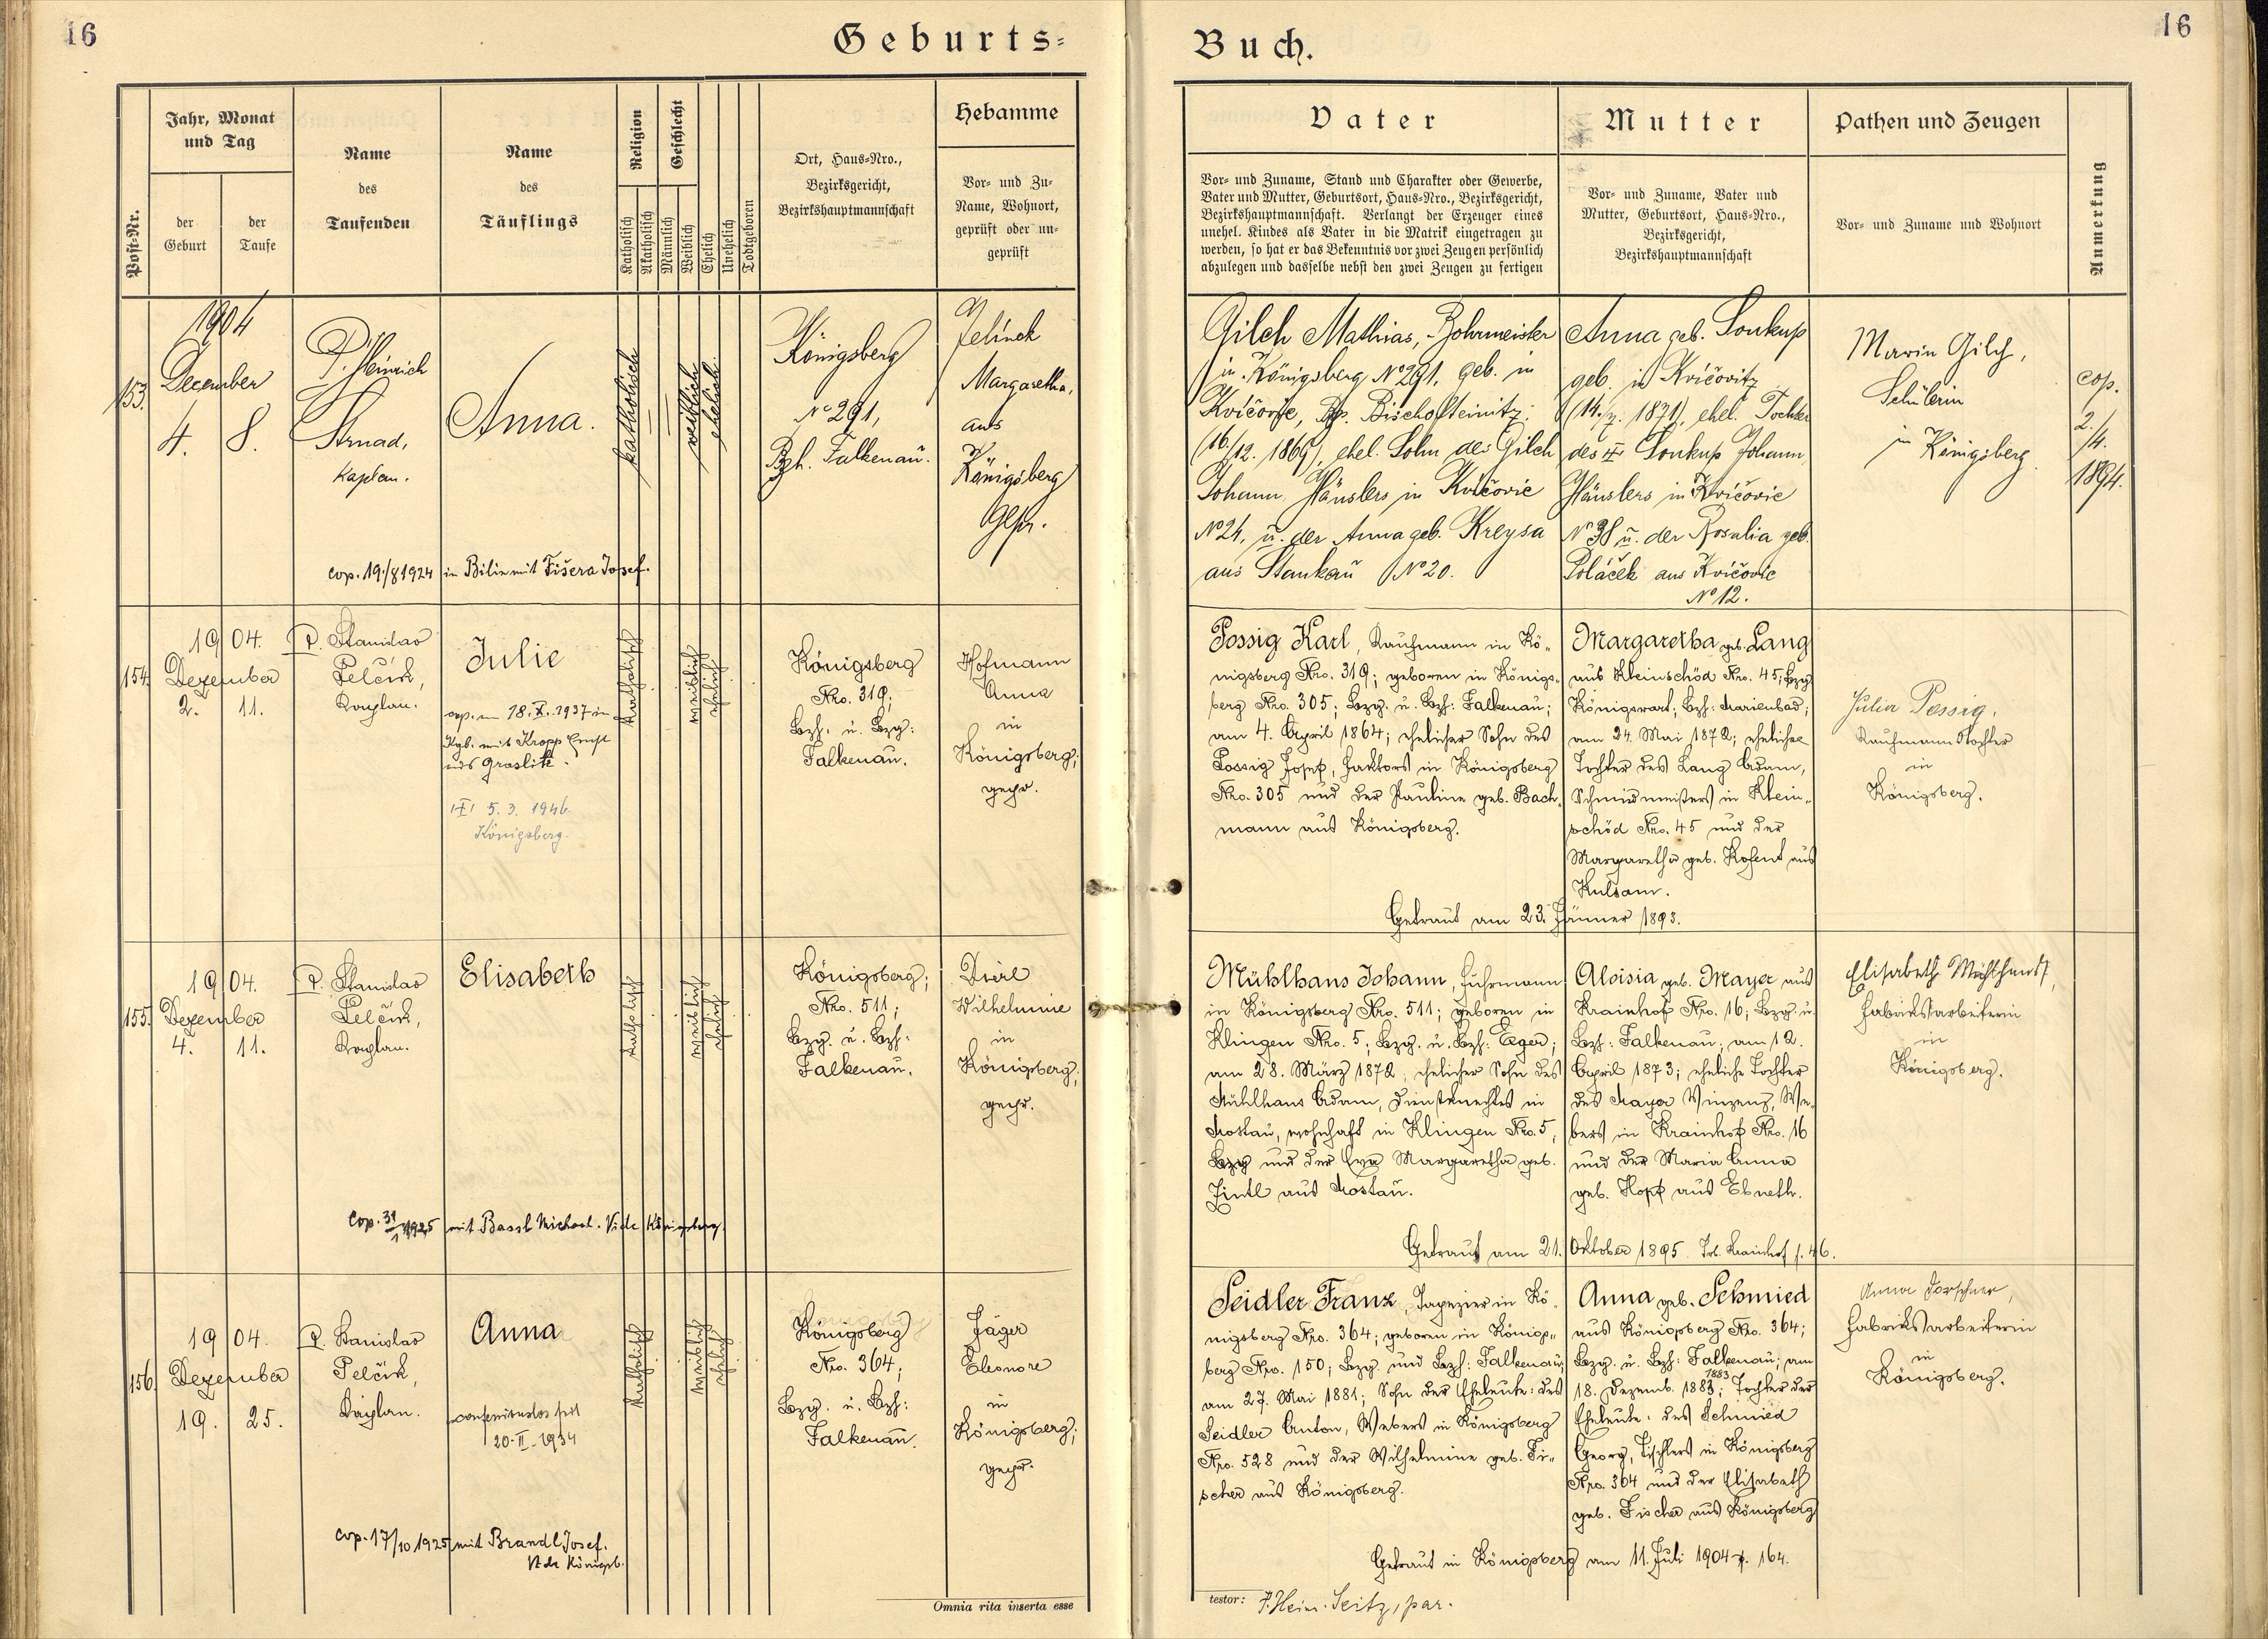 16
Geburts-
Buch.
16
Post-Nr.
Jahr, Monat
und Tag
der
Geburt
der
Taufe
Name
des
Taufenden
Name
des
Täuflings
Religion
Katholisch
Akatholisch
Geschlecht
Männlich
Weiblich
Ehelich
Unehelich
Todtgeboren
Ort, Haus-Nro.,
Bezirksgericht,
Bezirkshauptmannschaft
Hebamme
Vor- und Zu-
Name, Wohnort,
geprüft oder un-
geprüft
Vater
Vor- und Zuname, Stand und Charakter oder Gewerbe,
Vater und Mutter, Geburtsort, Haus-Nro., Bezirksgericht,
Bezirkshauptmannschaft. Verlangt der Erzeuger eines
unehel. Kindes als Vater in die Matrik eingetragen zu
werden, so hat er das Bekenntnis vor zwei Zeugen persönlich
abzulegen und dasselbe nebst den zwei Zeugen zu fertigen
Mutter
Vor- und Zuname, Vater und
Mutter, Geburtsort, Haus-Nro.,
Bezirksgericht,
Bezirkshauptmannschaft
Pathen und Zeugen
Vor- und Zuname und Wohnort
Anmerkung
153.
1904
December
4. 8.
P. Heinrich
Strnad,
Kaplan.
Anna.
katholisch
weiblich
ehelich
Königsberg
No 291,
Bzh. Falkenau.
Jelinek
Margaretha,
aus
Königsberg
gepr.
cop. 19./8 1924 in Bilin mit Fišera Josef.
Gilch Mathias, Bohrmeister
in Königsberg No 291, geb. in
Kvičovic, Bz. Bischofteinitz;
(16./12. 1869), ehel. Sohn des Gilch
Johann, Häuslers in Kvičovic
No 24, u. der Anna geb. Kreysa
aus Stankau No 20.
Anna geb. Soukup
geb. in Kvičovitz
(14./7. 1871), ehel. Tochter
des Soukup Johann,
Häuslers in Kvičovic
No 38 u. der Rosalia geb.
Poláček aus Kvičovic
No 12.
Marie Gilch,
Schülerin
in Königsberg.
cop.
2./
4.
1894.
154.
1904.
Dezember
2. 11.
P. Stanislav
Pelčik,
Kaplan.
Julie
cop. am 18. X. 1937 in
Kgb. mit Kropp Ernst
aus Graslitz.
5. 3. 1946
Königsberg.
katholisch
weiblich
ehelich
Königsberg
Nro. 319;
Bzh. u. Bzg:
Falkenau.
Hofmann
Anna
in
Königsberg;
gepr.
Possig Karl, Kaufmann in Kö-
nigsberg Nro. 319; geboren in Königs-
berg Nro. 305; Bzg. u. Bzh: Falkenau;
am 4. April 1864; ehelicher Sohn des
Possig Josef, Faktors in Königsberg
Nro. 305 und der Pauline geb. Bach-
mann aus Königsberg.
Margaretha geb. Lang
aus Kleinschöd Nro. 45; Bzg
Königswart; Bzh: Marienbad;
am 24. Mai 1872; eheliche
Tochter des Lang Adam,
Schmiedmeisters in Klein-
schöd Nro. 45 und der
Margaretha geb. Kohent aus
Kulsam.
Getraut am 23. Jänner 1893.
Julia Possig,
Kaufmannstochter
in
Königsberg.
155.
1904.
Dezember
4. 11.
P. Stanislav
Pelčik,
Kaplan.
Elisabeth
katholisch
weiblich
ehelich
Königsberg;
Nro. 511;
Bzg. u. Bzh:
Falkenau.
Dierl
Wilhelmine
in
Königsberg;
gepr.
cop. 31/1 1925 mit Bassl Michael. Vide Königsberg.
Mühlhans Johann, Fuhrmann
in Königsberg Nro. 511; geboren in
Klingen Nro. 5; Bzg. u. Bzh: Eger;
am 28. März 1872; ehelicher Sohn des
Mühlhans Adam, Dienstknechtes in
Mostau, wohnhaft in Klingen Nro. 5,
Bzg und der Eva Margaretha geb.
Zintl aus Mostau.
Aloisia geb. Mayer aus
Krainhof Nro. 16; Bzg. u.
Bzh: Falkenau; am 12.
April 1873; eheliche Tochter
des Mayer Vinzenz, We-
bers in Krainhof Nro. 16
und der Maria Anna
geb. Hopf aus Ebmeth.
Getraut am 21. Oktober 1895. Trb. Krainhof f. 46.
Elisabeth Mühlhans,
Fabriksarbeiterin
in
Königsberg.
156.
1904.
Dezember
19. 25.
P. Stanislav
Pelčik,
Kaplan.
Anna
confessionslos seit
20-II-1934
katholisch
weiblich
ehelich
Königsberg
Nro. 364;
Bzg. u. Bzh:
Falkenau.
Jäger
Eleonore
in
Königsberg;
gepr.
cop. 17/10 1925 mit Brandl Josef.
Vide Königsb.
Seidler Franz, Tapezier in Kö-
nigsberg Nro. 364; geboren in Königs-
berg Nro. 150; Bzg. und Bzh: Falkenau;
am 27. Mai 1881; Sohn der Eheleute: des
Seidler Anton, Webers in Königsberg
Nro. 528 und der Wilhelmine geb. Fi-
scher aus Königsberg.
Anna geb. Schmied
aus Königsberg Nro. 364;
Bzg. u. Bzh: Falkenau; am
1883
18. Dezemb. 1883; Tochter der
Eheleute: des Schmied
Georg, Tischlers in Königsberg
Nro. 364 und der Elisabeth
geb. Fischer aus Königsberg
Getraut in Königsberg am 11. Juli 1904 f. 164.
Anna Forschner,
Fabriksarbeiterin
in
Königsberg.
Omnia rita inserta esse
testor: P. Hein. Seitz, par.